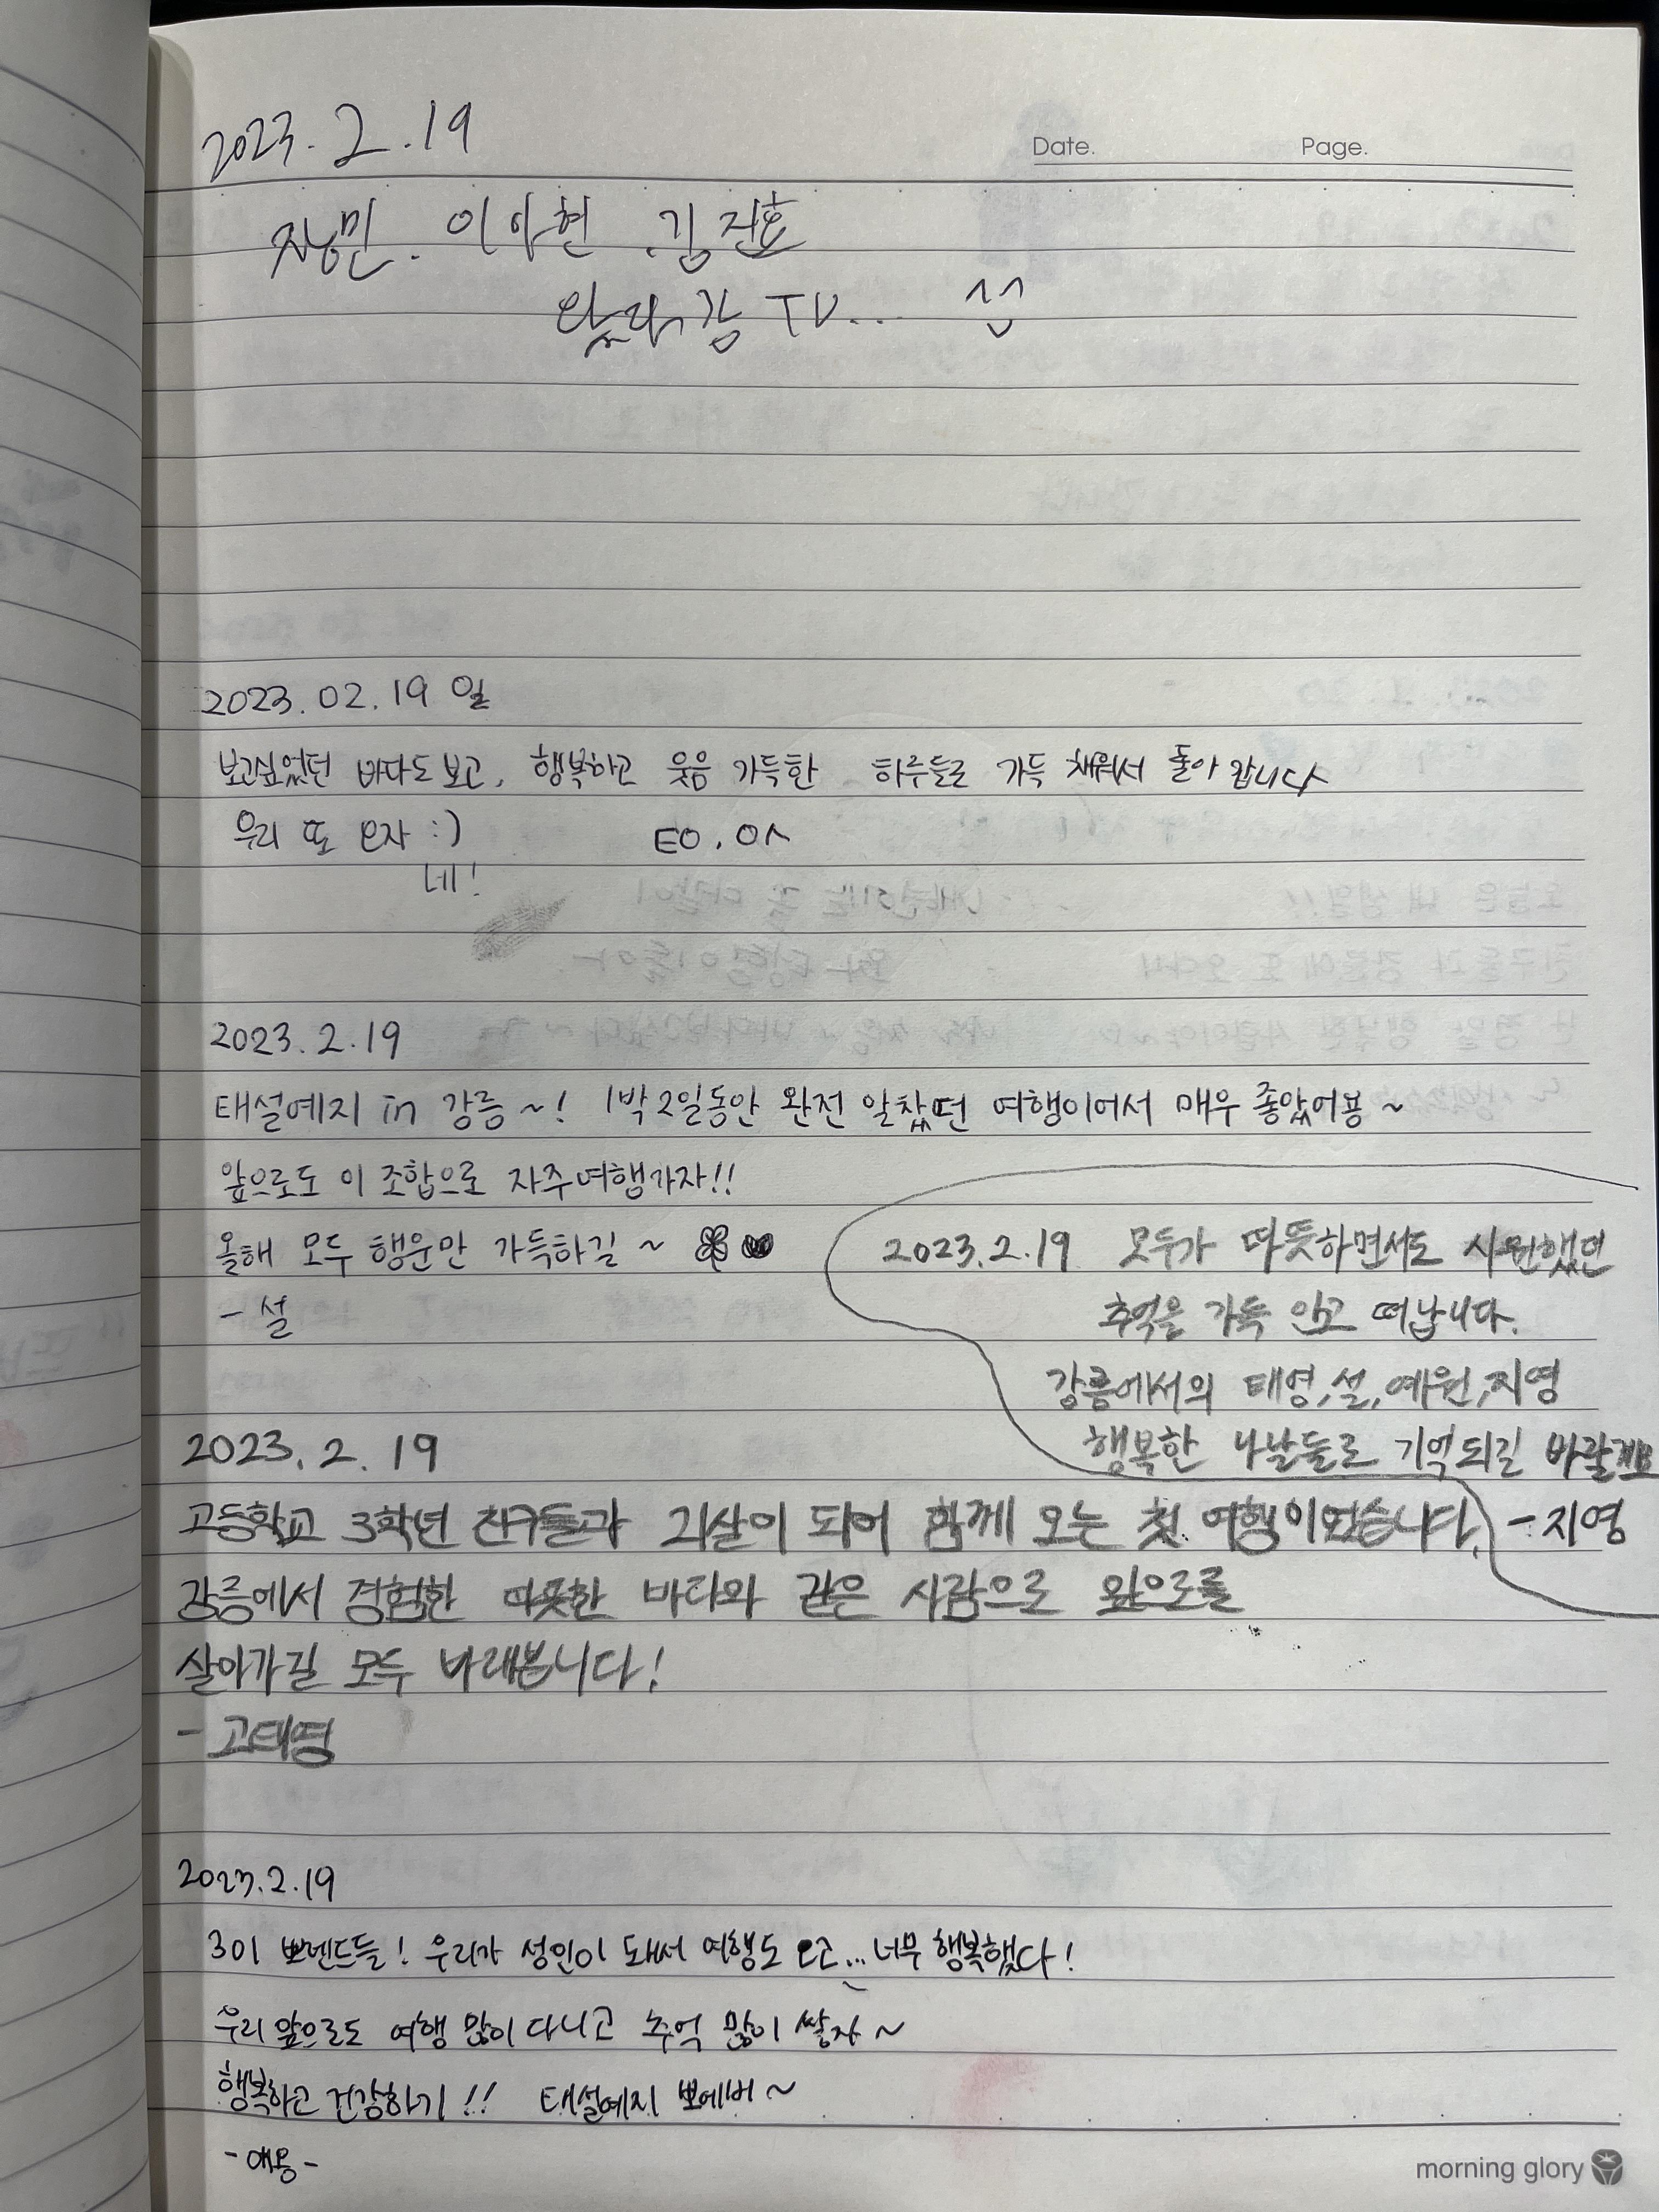 2023. 2. 19
Date.
Page.
이아현 . 김진호
TV...
2023. 02. 19 일
보고싶었던 바다도 보고, 행복하고 웃음 가득한 하루들로 가득 채워서 돌아 갑니다
우리 또 오자 :)
EO. O
네!
2023. 2. 19
태설예지 in 강릉 ~! 1박 2일동안 완전 알찼던 여행이어서 매우 좋았어용 ~
앞으로도 이 조합으로 자주여행가자!!
올해 모두 행운만 가득하길 ~
- 설
2023. 2. 19 모두가 따뜻하면서도 시원했던
추억을 가득 안고 떠납니다.
강릉에서의 태영,설,예원,지영
행복한 나날들로 기억되길 바랄게요
- 지영
2023. 2. 19
고등학교 3학년 친구들과 21살이 되어 함께 오는 첫 여행이었습니다.
강릉에서 경험한 따뜻한 바다와 같은 사람으로 앞으로를
살아가길 모두 바래봅니다!
- 고태영
2023. 2. 19
301 쁘렌드들! 우리가 성인이 돼서 여행도 오고... 너무 행복했다!
우리 앞으로도 여행 많이 다니고 추억 많이 쌓자 ~
행복하고 건강하기!! 태설예지 뽀에버 ~
morning glory